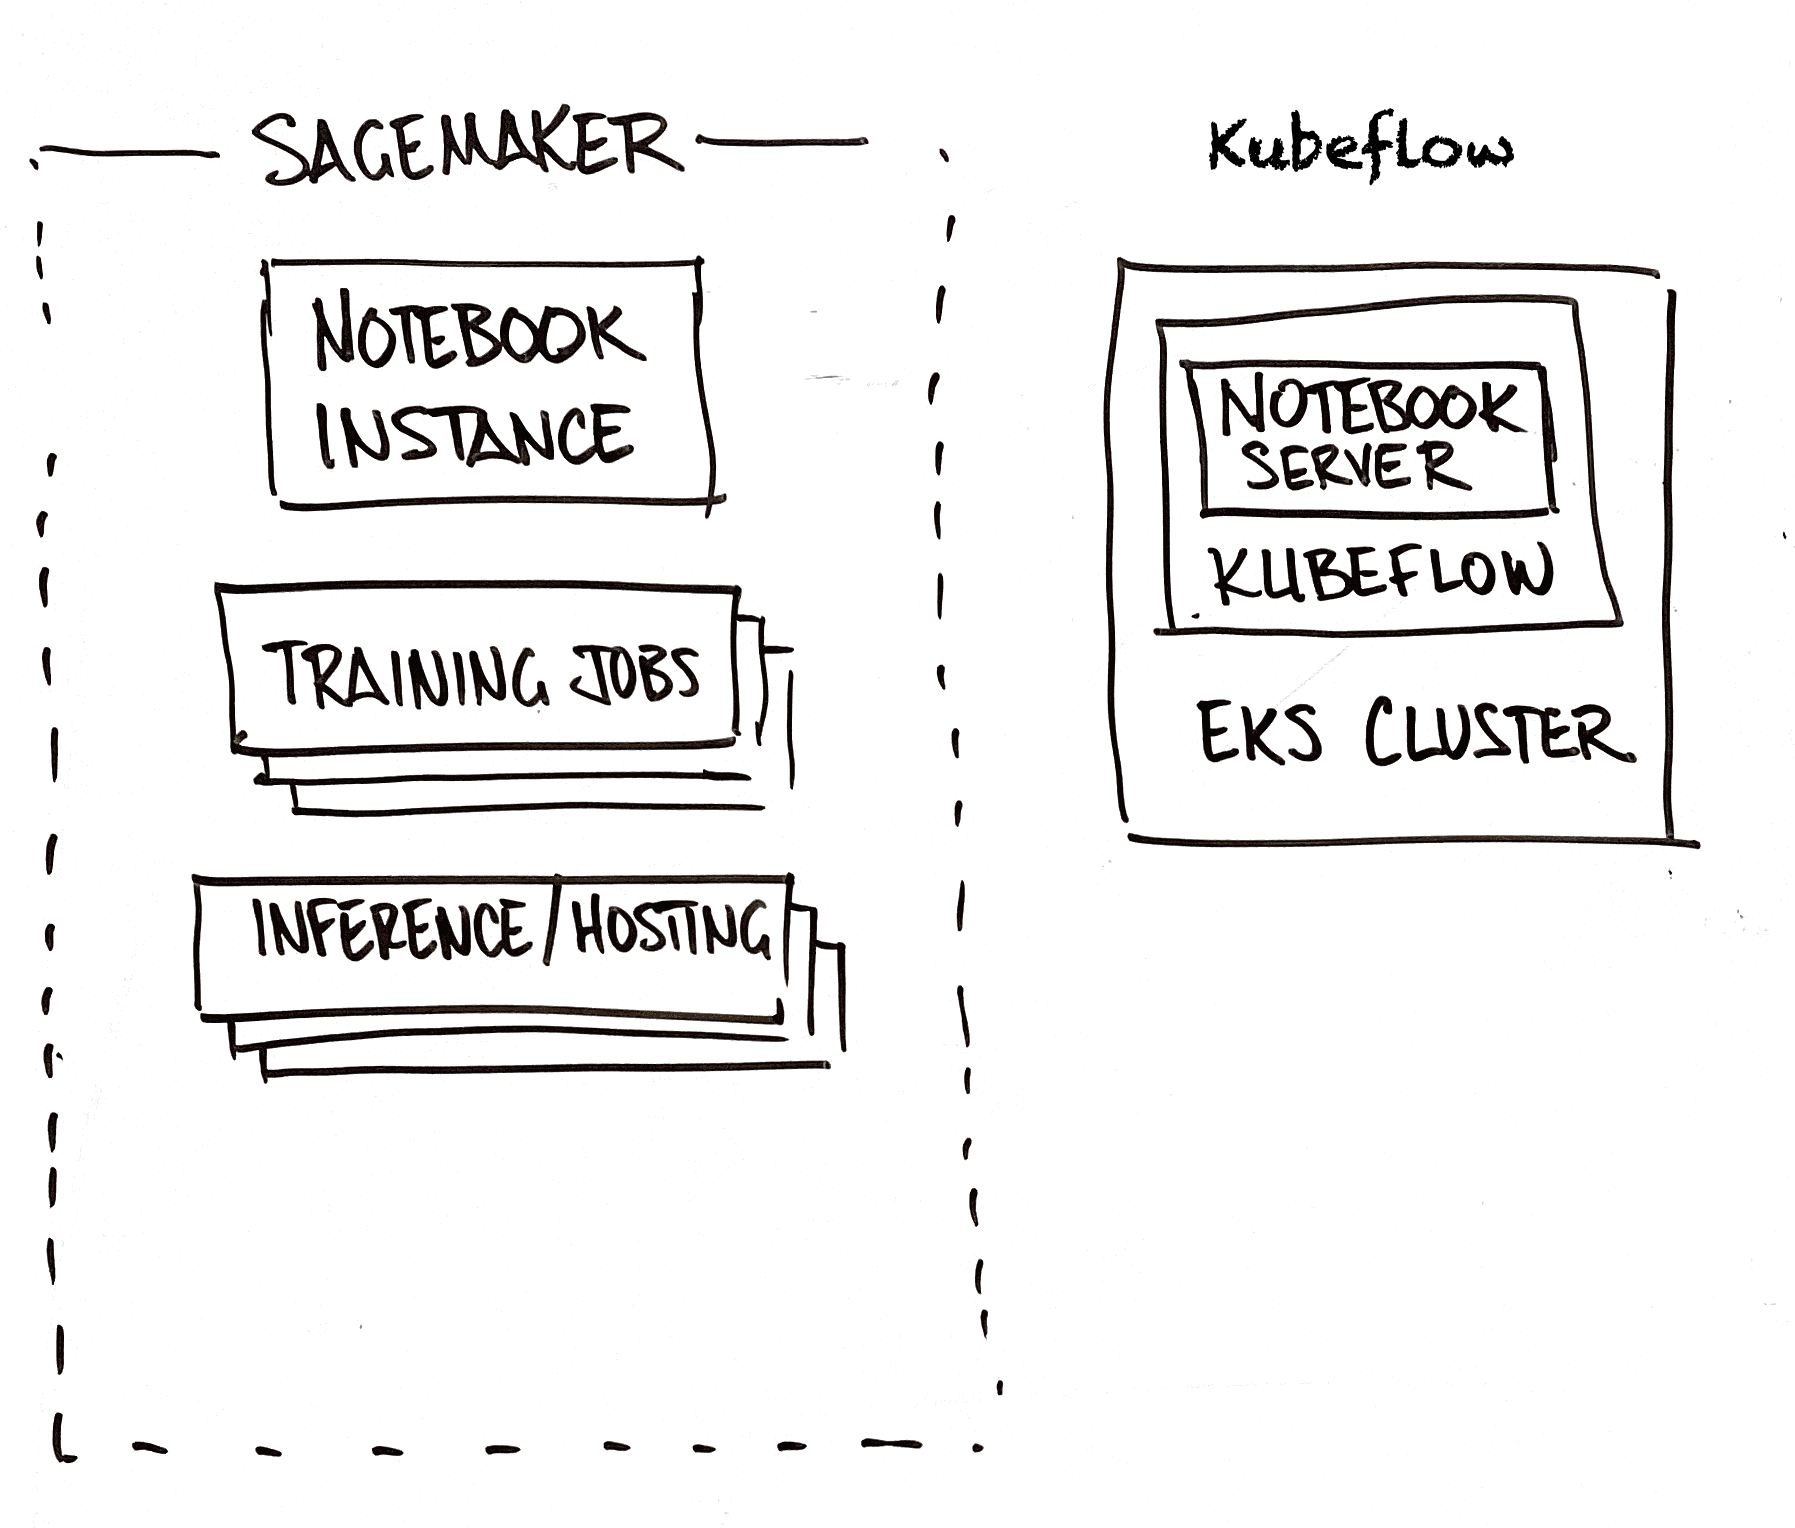 SAGEMAKER
NOTEBOOK
INSTANCE
TRAINING JOBS
INFERENCE/HOSTING
Kubeflow
NOTEBOOK
SERVER
KUBEFLOW
EKS CLUSTER